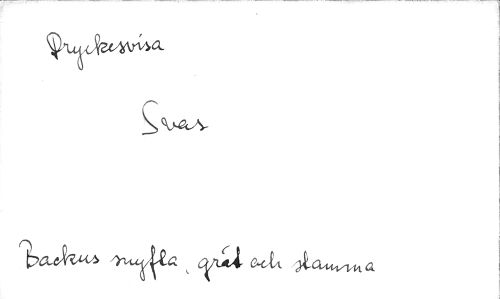 Dryckesvisa
Svas
Backus snyfta, gråt och stamma